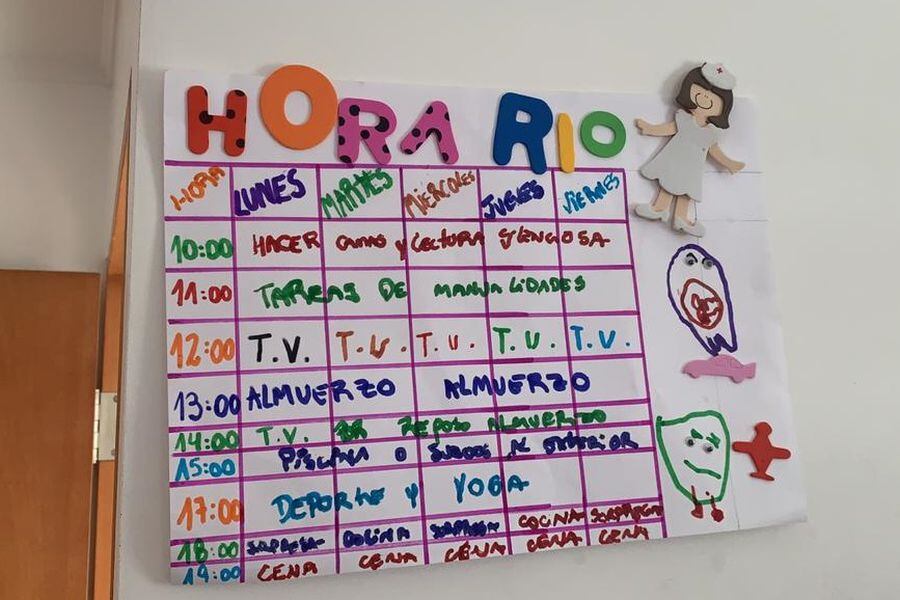 HORA RIO
HORA LUNES MARTES MIERCOLES JUEVES VIERNES
10:00 HACER CAMAS y LECTURA SILENCIOSA
11:00 TAREAS DE MANUALIDADES
12:00 T.V. T.V. T.V. T.V. T.V.
13:00 ALMUERZO ALMUERZO
14:00 T.V. REPOSO ALMUERZO
15:00 PISCINA O JUEGOS DE EXTERIOR
17:00 DEPORTE Y YOGA
18:00 SORPRESA COCINA SORPRESA COCINA SORPRESA
19:00 CENA CENA CENA CENA CENA